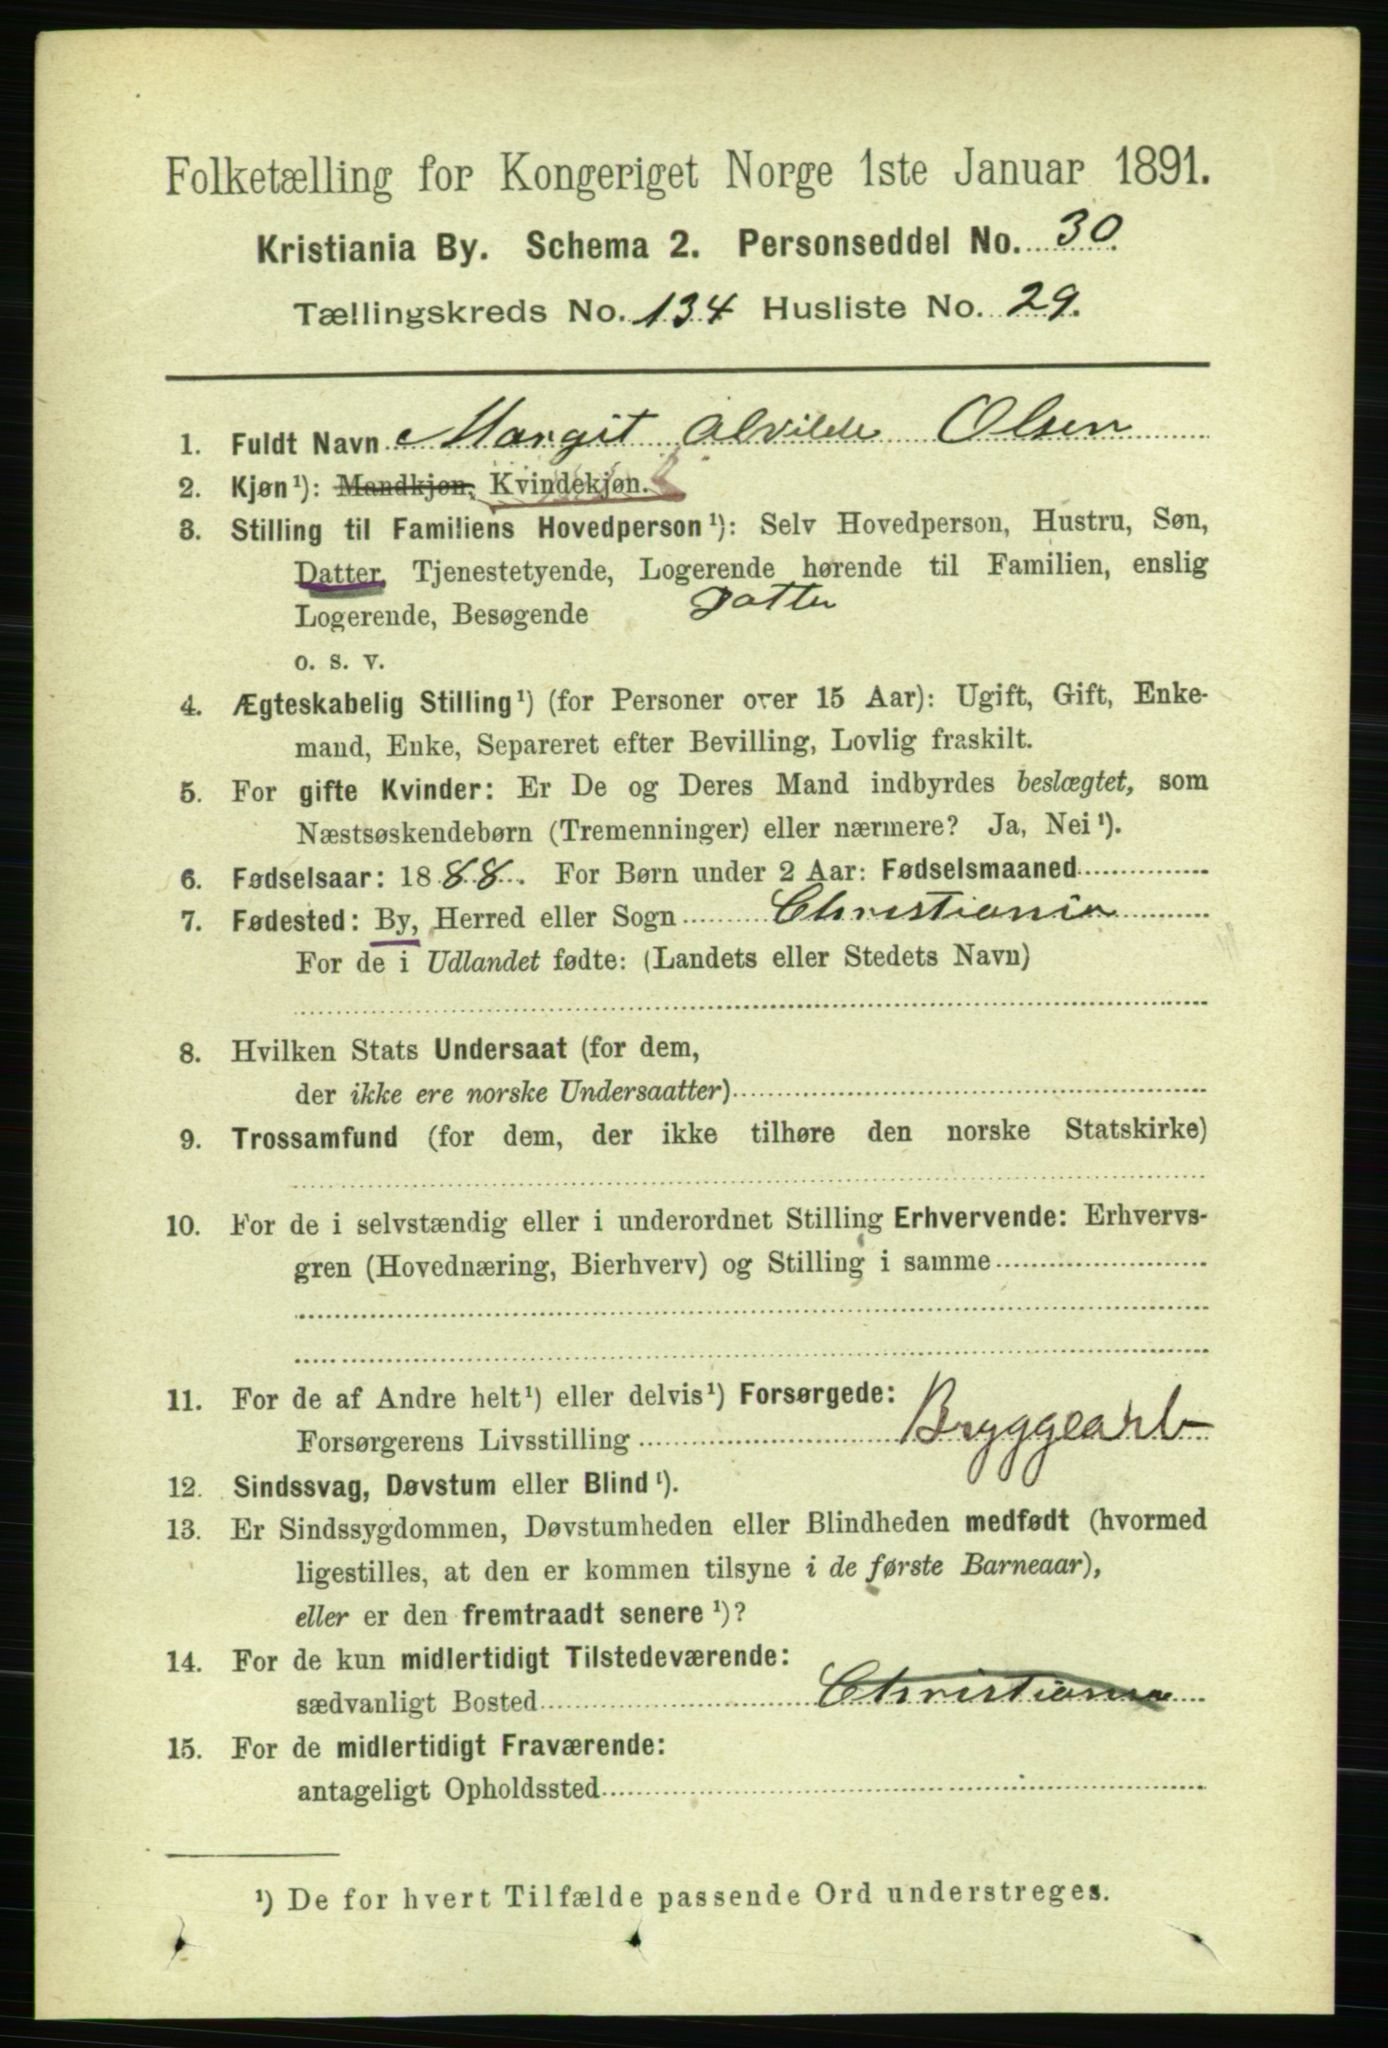 Folketælling for Kongeriget Norge 1ste Januar 1891.
Kristiania By. Schema 2. Personseddel No. 30.
Tællingskreds No. 134 Husliste No. 29.
1. Fuldt Navn Margit Alvilde Olsen
2. Kjøn¹): Mandkjøn, Kvindekjøn.
3. Stilling til Familiens Hovedperson¹): Selv Hovedperson, Hustru, Søn,
Datter, Tjenestetyende, Logerende hørende til Familien, enslig
Logerende, Besøgende Datter
o. s. v.
4. Ægteskabelig Stilling¹) (for Personer over 15 Aar): Ugift, Gift, Enke-
mand, Enke, Separeret efter Bevilling, Lovlig fraskilt.
5. For gifte Kvinder: Er De og Deres Mand indbyrdes beslægtet, som
Næstsøskendebørn (Tremenninger) eller nærmere? Ja, Nei¹).
6. Fødselsaar: 1888. For Børn under 2 Aar: Fødselsmaaned
7. Fødested: By, Herred eller Sogn Christiania
For de i Udlandet fødte: (Landets eller Stedets Navn)
8. Hvilken Stats Undersaat (for dem,
der ikke ere norske Undersaatter)
9. Trossamfund (for dem, der ikke tilhøre den norske Statskirke)
10. For de i selvstændig eller i underordnet Stilling Erhvervende: Erhvervs-
gren (Hovednæring, Bierhverv) og Stilling i samme
11. For de af Andre helt¹) eller delvis¹) Forsørgede:
Forsørgerens Livsstilling Bryggearb
12. Sindssvag, Døvstum eller Blind¹).
13. Er Sindssygdommen, Døvstumheden eller Blindheden medfødt (hvormed
ligestilles, at den er kommen tilsyne i de første Barneaar),
eller er den fremtraadt senere¹)?
14. For de kun midlertidigt Tilstedeværende:
sædvanligt Bosted Christiania
15. For de midlertidigt Fraværende:
antageligt Opholdssted
¹) De for hvert Tilfælde passende Ord understreges.